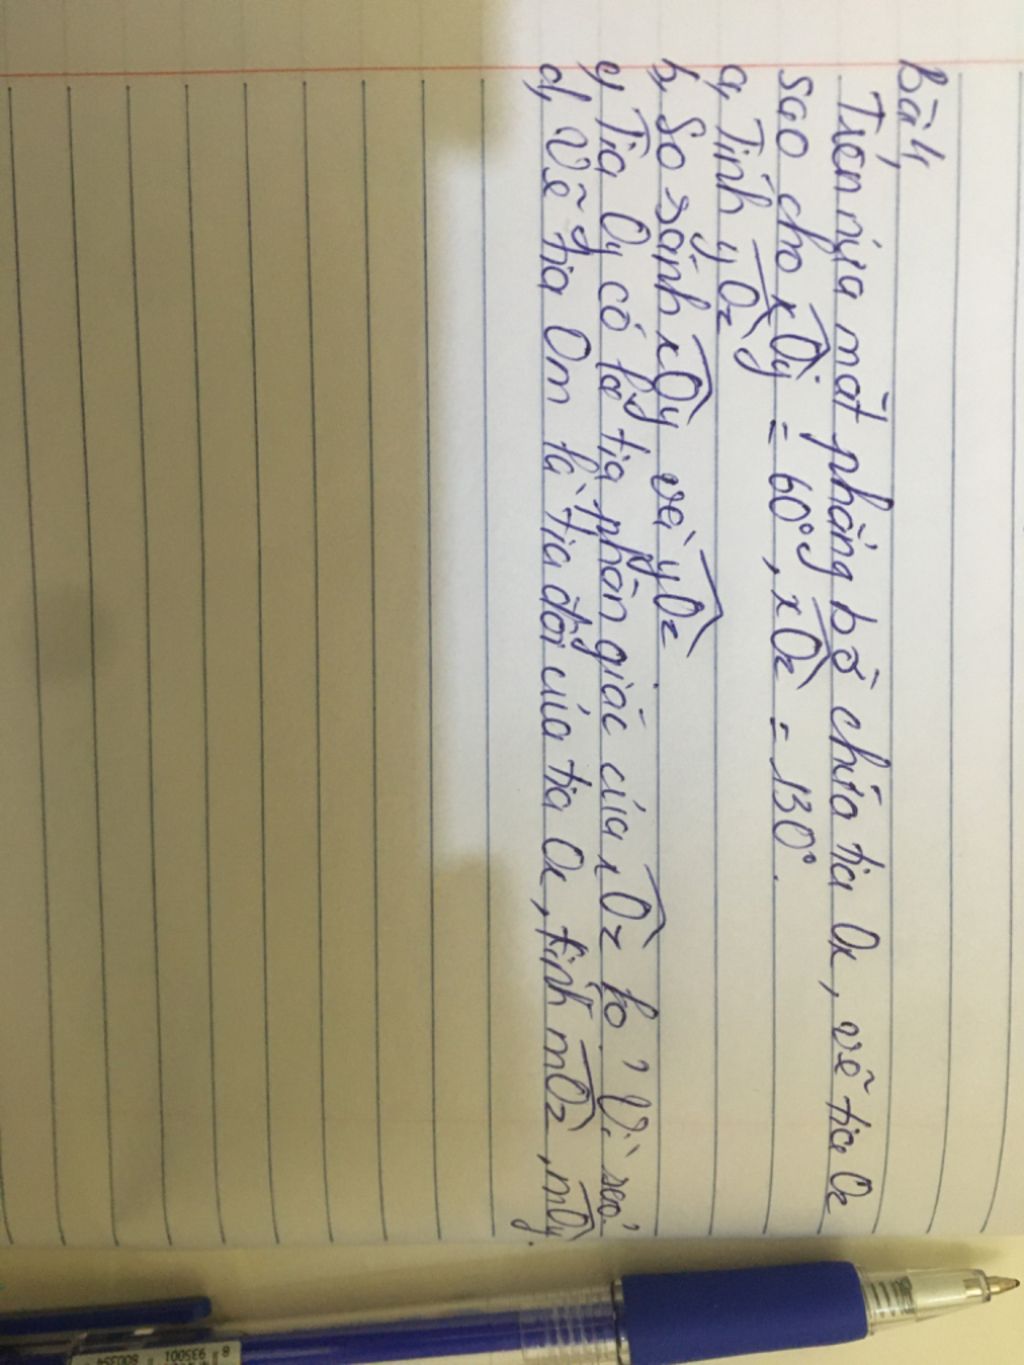 Bài 4
Trên nửa mặt phẳng bờ chứa tia Ox, vẽ tia Oz
sao cho xOy = 60°, xOz = 130°.
a, Tính yOz
b, So sánh xOy và yOz
c, Tia Oy có là tia phân giác của xOz ko? Vì sao?
d, Vẽ tia Om là tia đối của tia Ox, tính mOz, mOy.
8 935001 800354